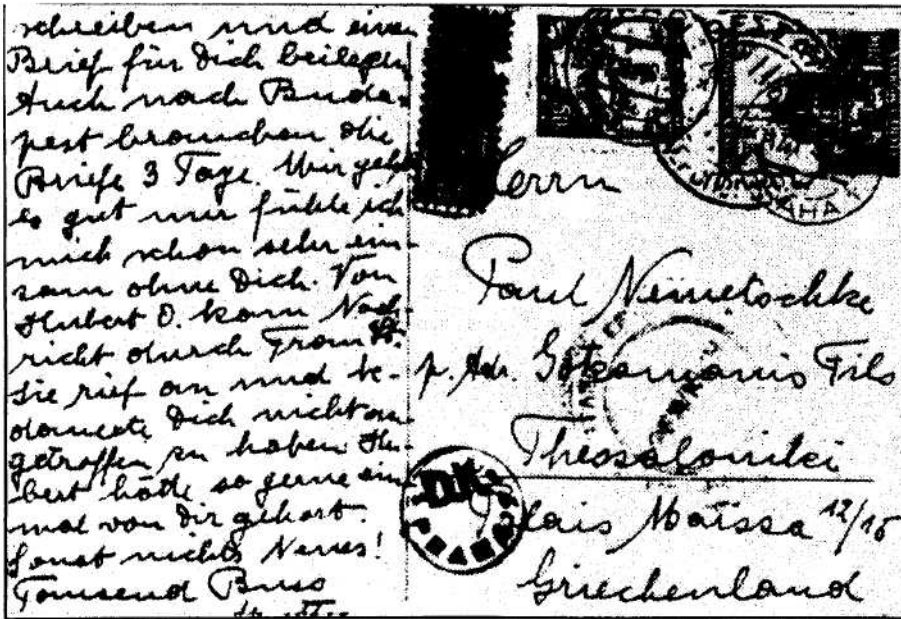 schreiben und einen
Brief für Dich beilegen
Auch nach Buda-
pest brauchen die
Briefe 3 Tage. Mir geht
es gut nur fühle ich
mich schon sehr ein-
sam ohne Dich. Von
Hubert O. kam Nach
richt durch Frau
sie rief an und be-
dauerte Dich nicht an
getroffen zu haben Hu
bert hätte so gerne ein
mal von Dir gehört.
Sonst nichts Neues!
Tausend Bussi
Herrn
Paul Nemetschke
p. Adr. Fils
Thessaloniki
Maïssa 12/16
Griechenland